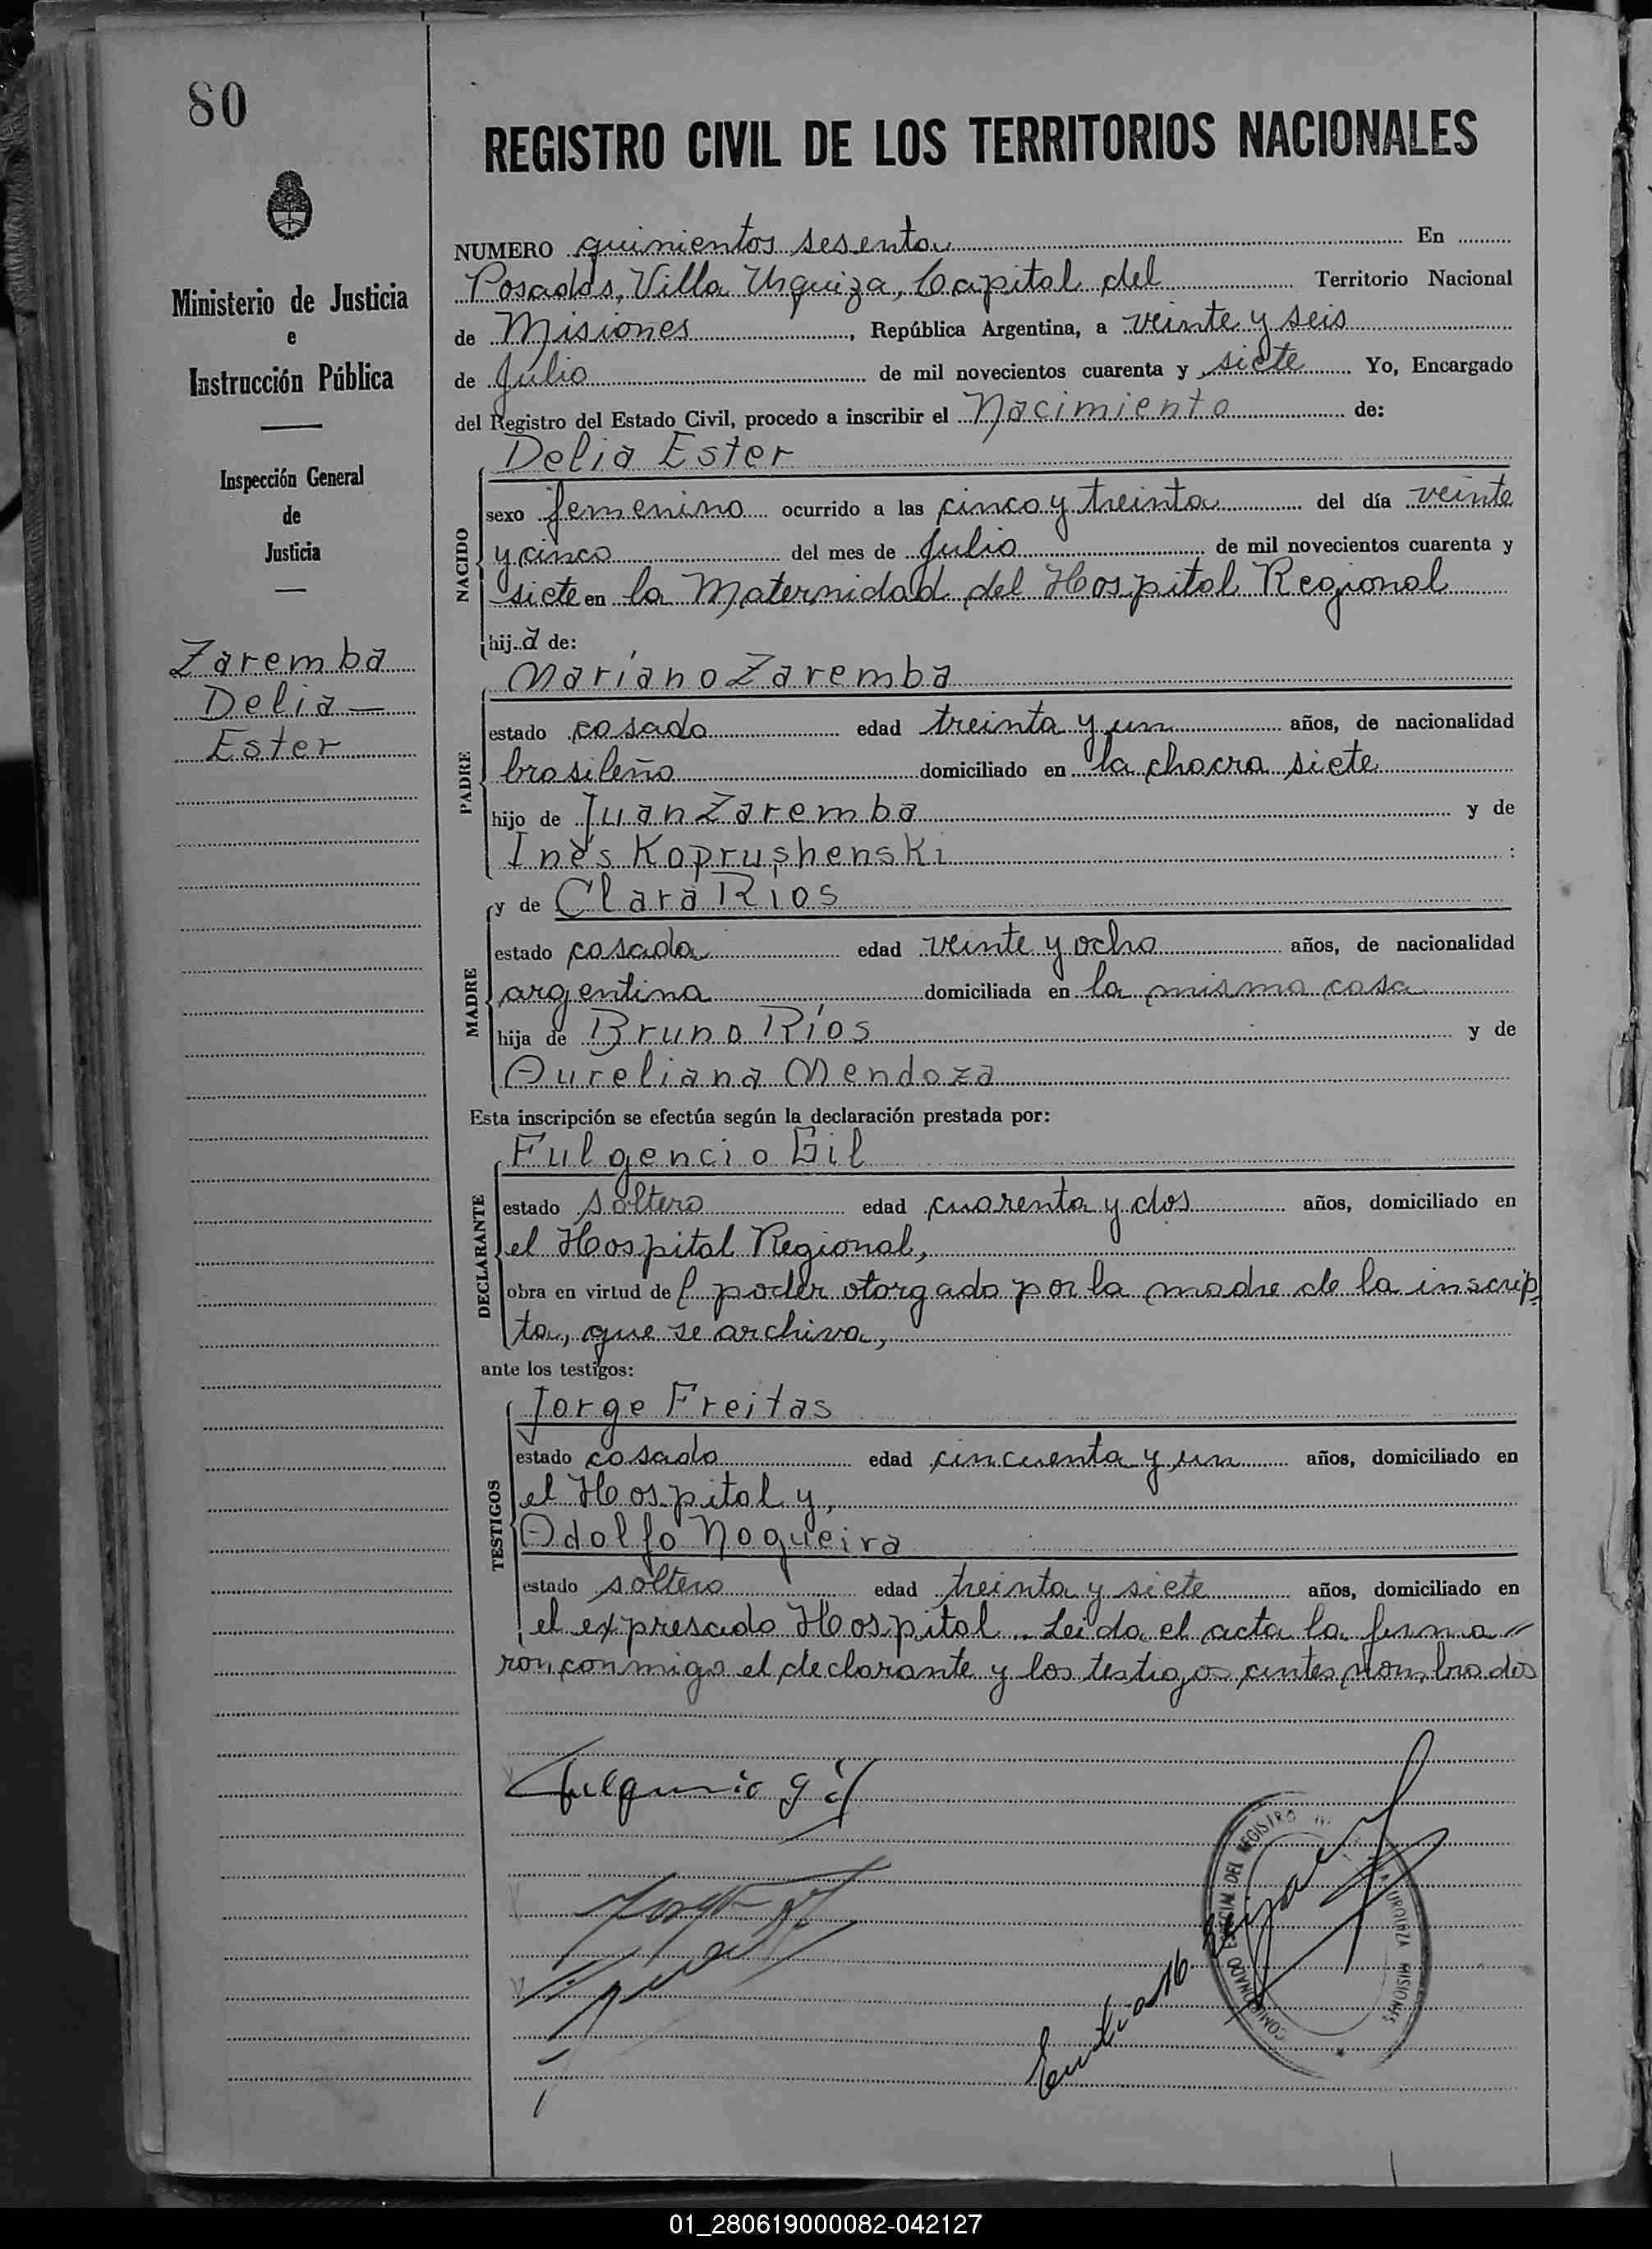 80
REGISTRO CIVIL DE LOS TERRITORIOS NACIONALES
Ministerio de Justicia
e
Instrucción Pública
Inspección General
de
Justicia
Zaremba
Delia —
Ester
NUMERO quinientos sesenta En
Posadas, Villa Urquiza, Capital del Territorio Nacional
de Misiones, República Argentina, a veinte y seis
de Julio de mil novecientos cuarenta y siete Yo, Encargado
del Registro del Estado Civil, procedo a inscribir el Nacimiento de:
Delia Ester
NACIDO
sexo femenino ocurrido a las cinco y treinta del día veinte
y cinco del mes de Julio de mil novecientos cuarenta y
siete en la Maternidad del Hospital Regional
hija de:
Mariano Zaremba
PADRE
estado casado edad treinta y un años, de nacionalidad
brasileño domiciliado en la chacra siete
hijo de Juan Zaremba y de
Inés Koprushenski :
y de Clara Ríos
MADRE
estado casada edad veinte y ocho años, de nacionalidad
argentina domiciliada en la misma casa
hija de Bruno Ríos y de
Aureliana Mendoza
Esta inscripción se efectúa según la declaración prestada por:
Fulgencio Gil
DECLARANTE
estado soltero edad cuarenta y dos años, domiciliado en
el Hospital Regional,
obra en virtud del poder otorgado por la madre de la inscrip
ta, que se archiva,
ante los testigos:
Jorge Freitas
TESTIGOS
estado casado edad cincuenta y un años, domiciliado en
el Hospital y,
Adolfo Nogueira
estado soltero edad treinta y siete años, domiciliado en
el expresado Hospital.. Leida el acta la firma=
ron conmigo el declarante y los testigos antes nombrados
Fulgencio Gil
COMISIONADO ESPECIAL DEL REGISTRO URQUIZA MISIONES
01_280619000082-042127